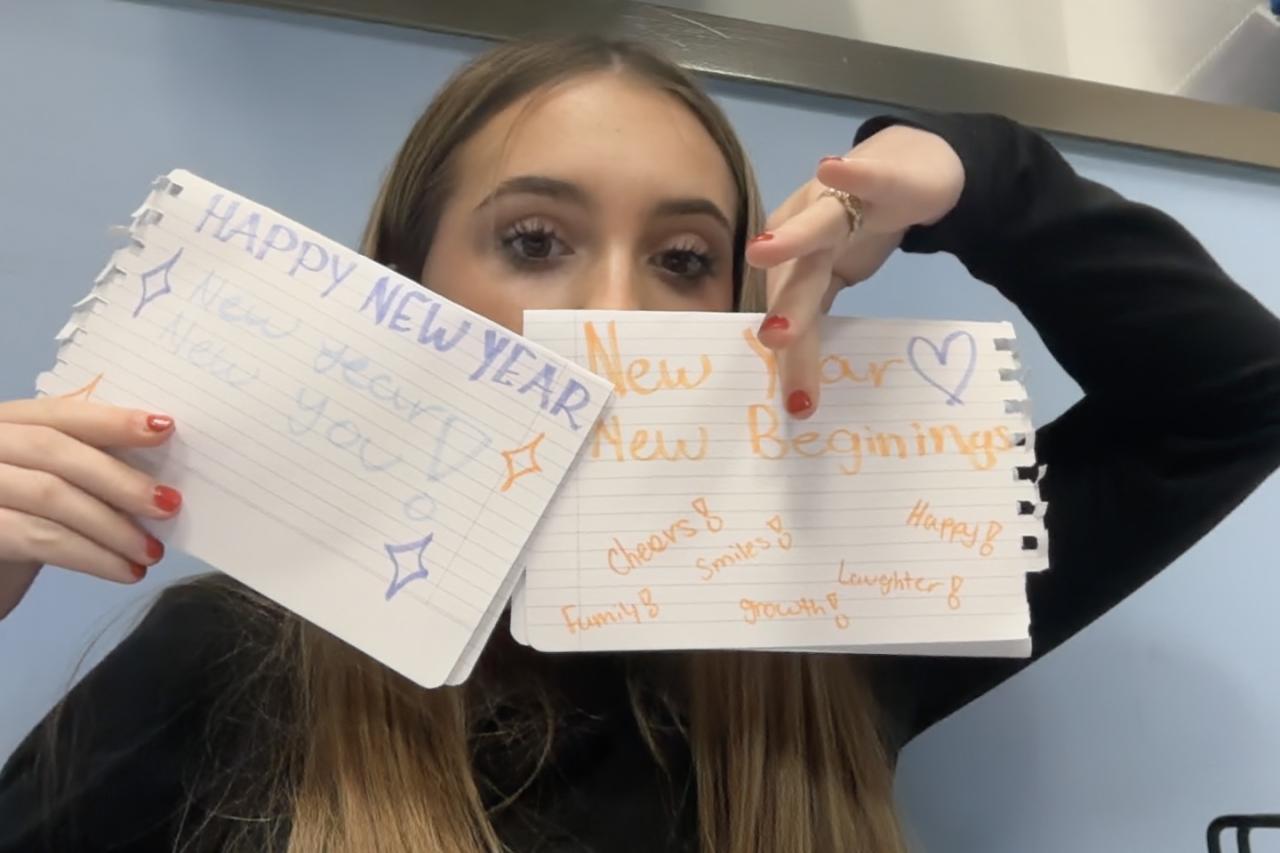 HAPPY NEW YEAR
New year
New you!
New Year
New Beginings
Cheers!
Smiles!
Happy!
Family!
growth!
Laughter!